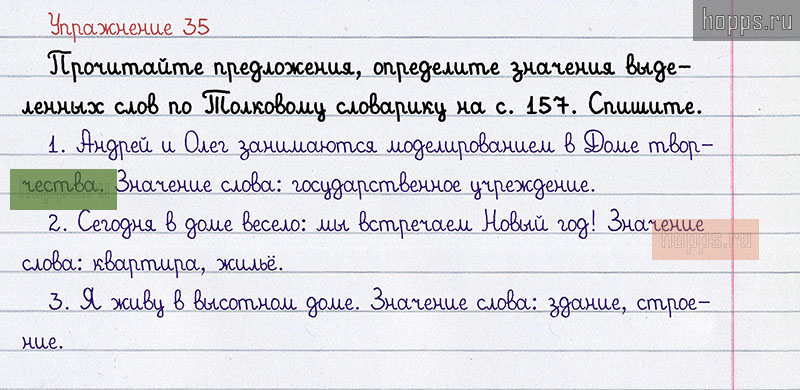 Упражнение 35
hopps.ru
Прочитайте предложения, определите значения выде-
ленных слов по Толковому словарику на с. 157. Спишите.
1. Андрей и Олег занимаются моделированием в Доме твор-
чества. Значение слова: государственное учреждение.
hopps.ru
2. Сегодня в доме весело: мы встречаем Новый год! Значение
hopps.ru
слова: квартира, жильё.
3. Я живу в высотном доме. Значение слова: здание, строе-
ние.